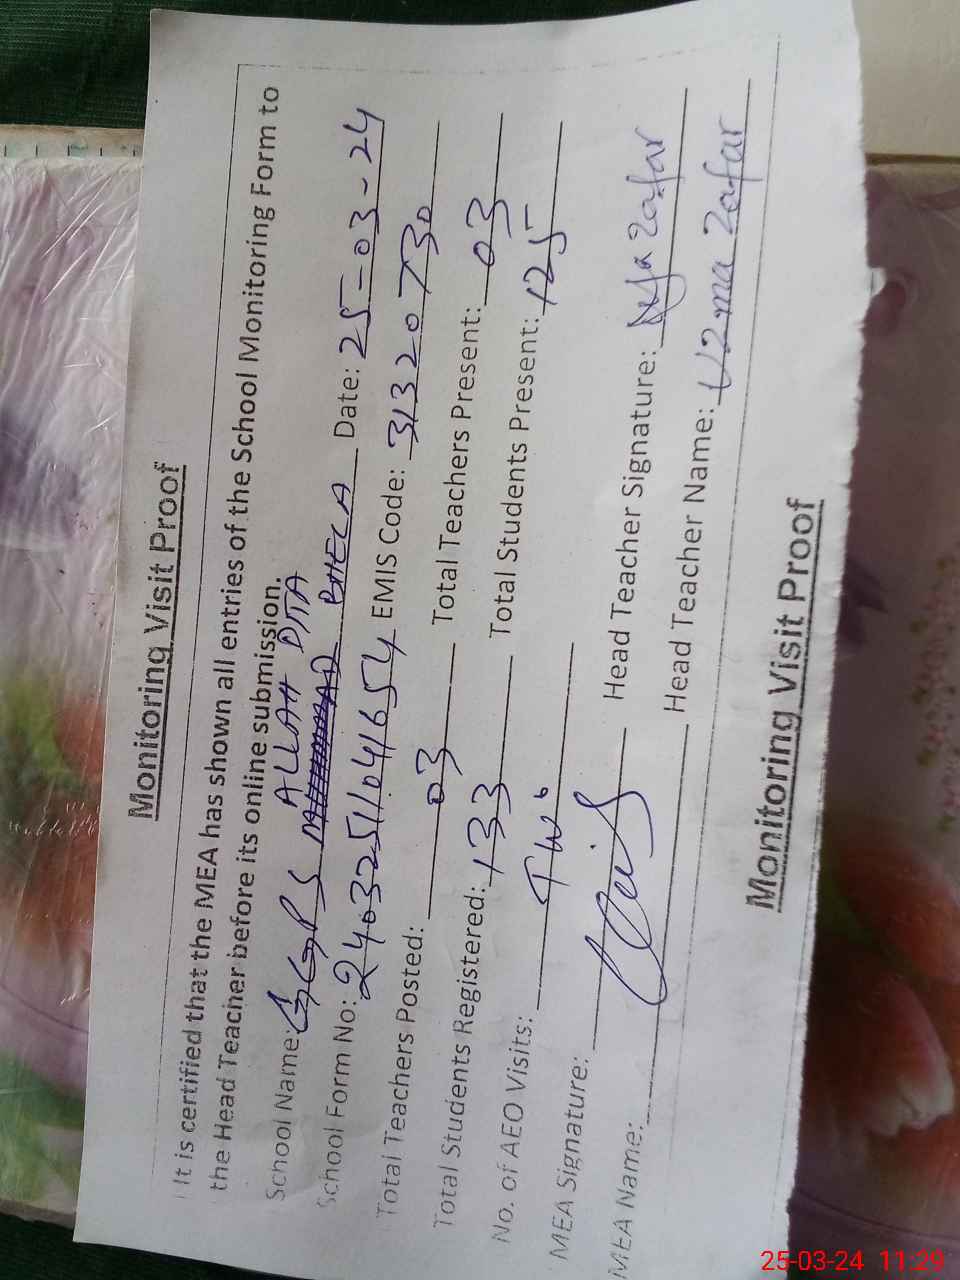 Monitoring Visit Proof
It is certified that the MEA has shown all entries of the School Monitoring Form to
the Head Teacher before its online submission.
ALLAH DITA
School Name: GGPS BHECA Date: 25-03-24
School Form No: 24032511041654 EMIS Code: 31320730
Total Teachers Posted: 03 Total Teachers Present: 03
Total Students Registered: 133 Total Students Present: 125
No. of AEO Visits: Two
MEA Signature: Head Teacher Signature: Zafar
MEA Name: Head Teacher Name: Uzma Zafar
Monitoring Visit Proof
25-03-24 11:29